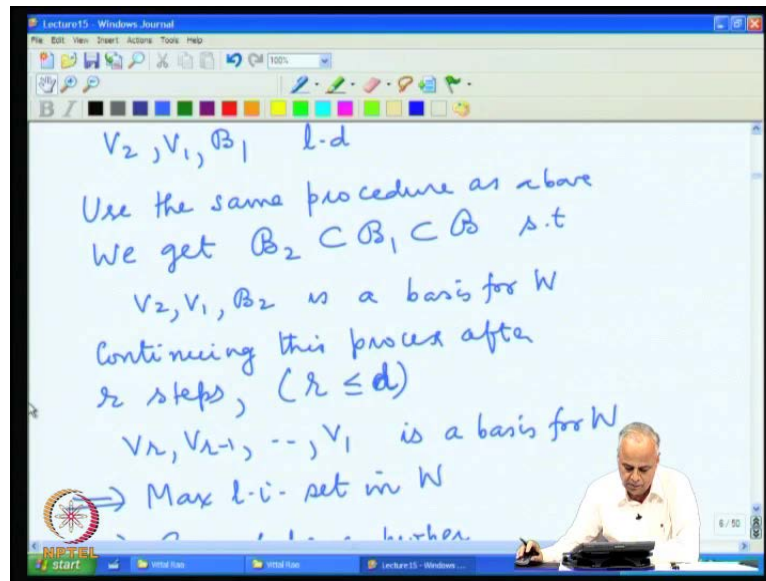 Lecture15 - Windows Journal
File Edit View Insert Actions Tools Help
100%
B I
V2, V1, B1 l-d
Use the same procedure as above
We get B2 ⊂ B1 ⊂ B s.t
V2, V1, B2 is a basis for W
Continuing this process after
r steps, (r ≤ d)
Vr, Vr-1, --, V1 is a basis for W
⟹ Max l-i- set in W
6 / 50
NPTEL
start Vittal Rao Vittal Rao Lecture15 - Windows ...